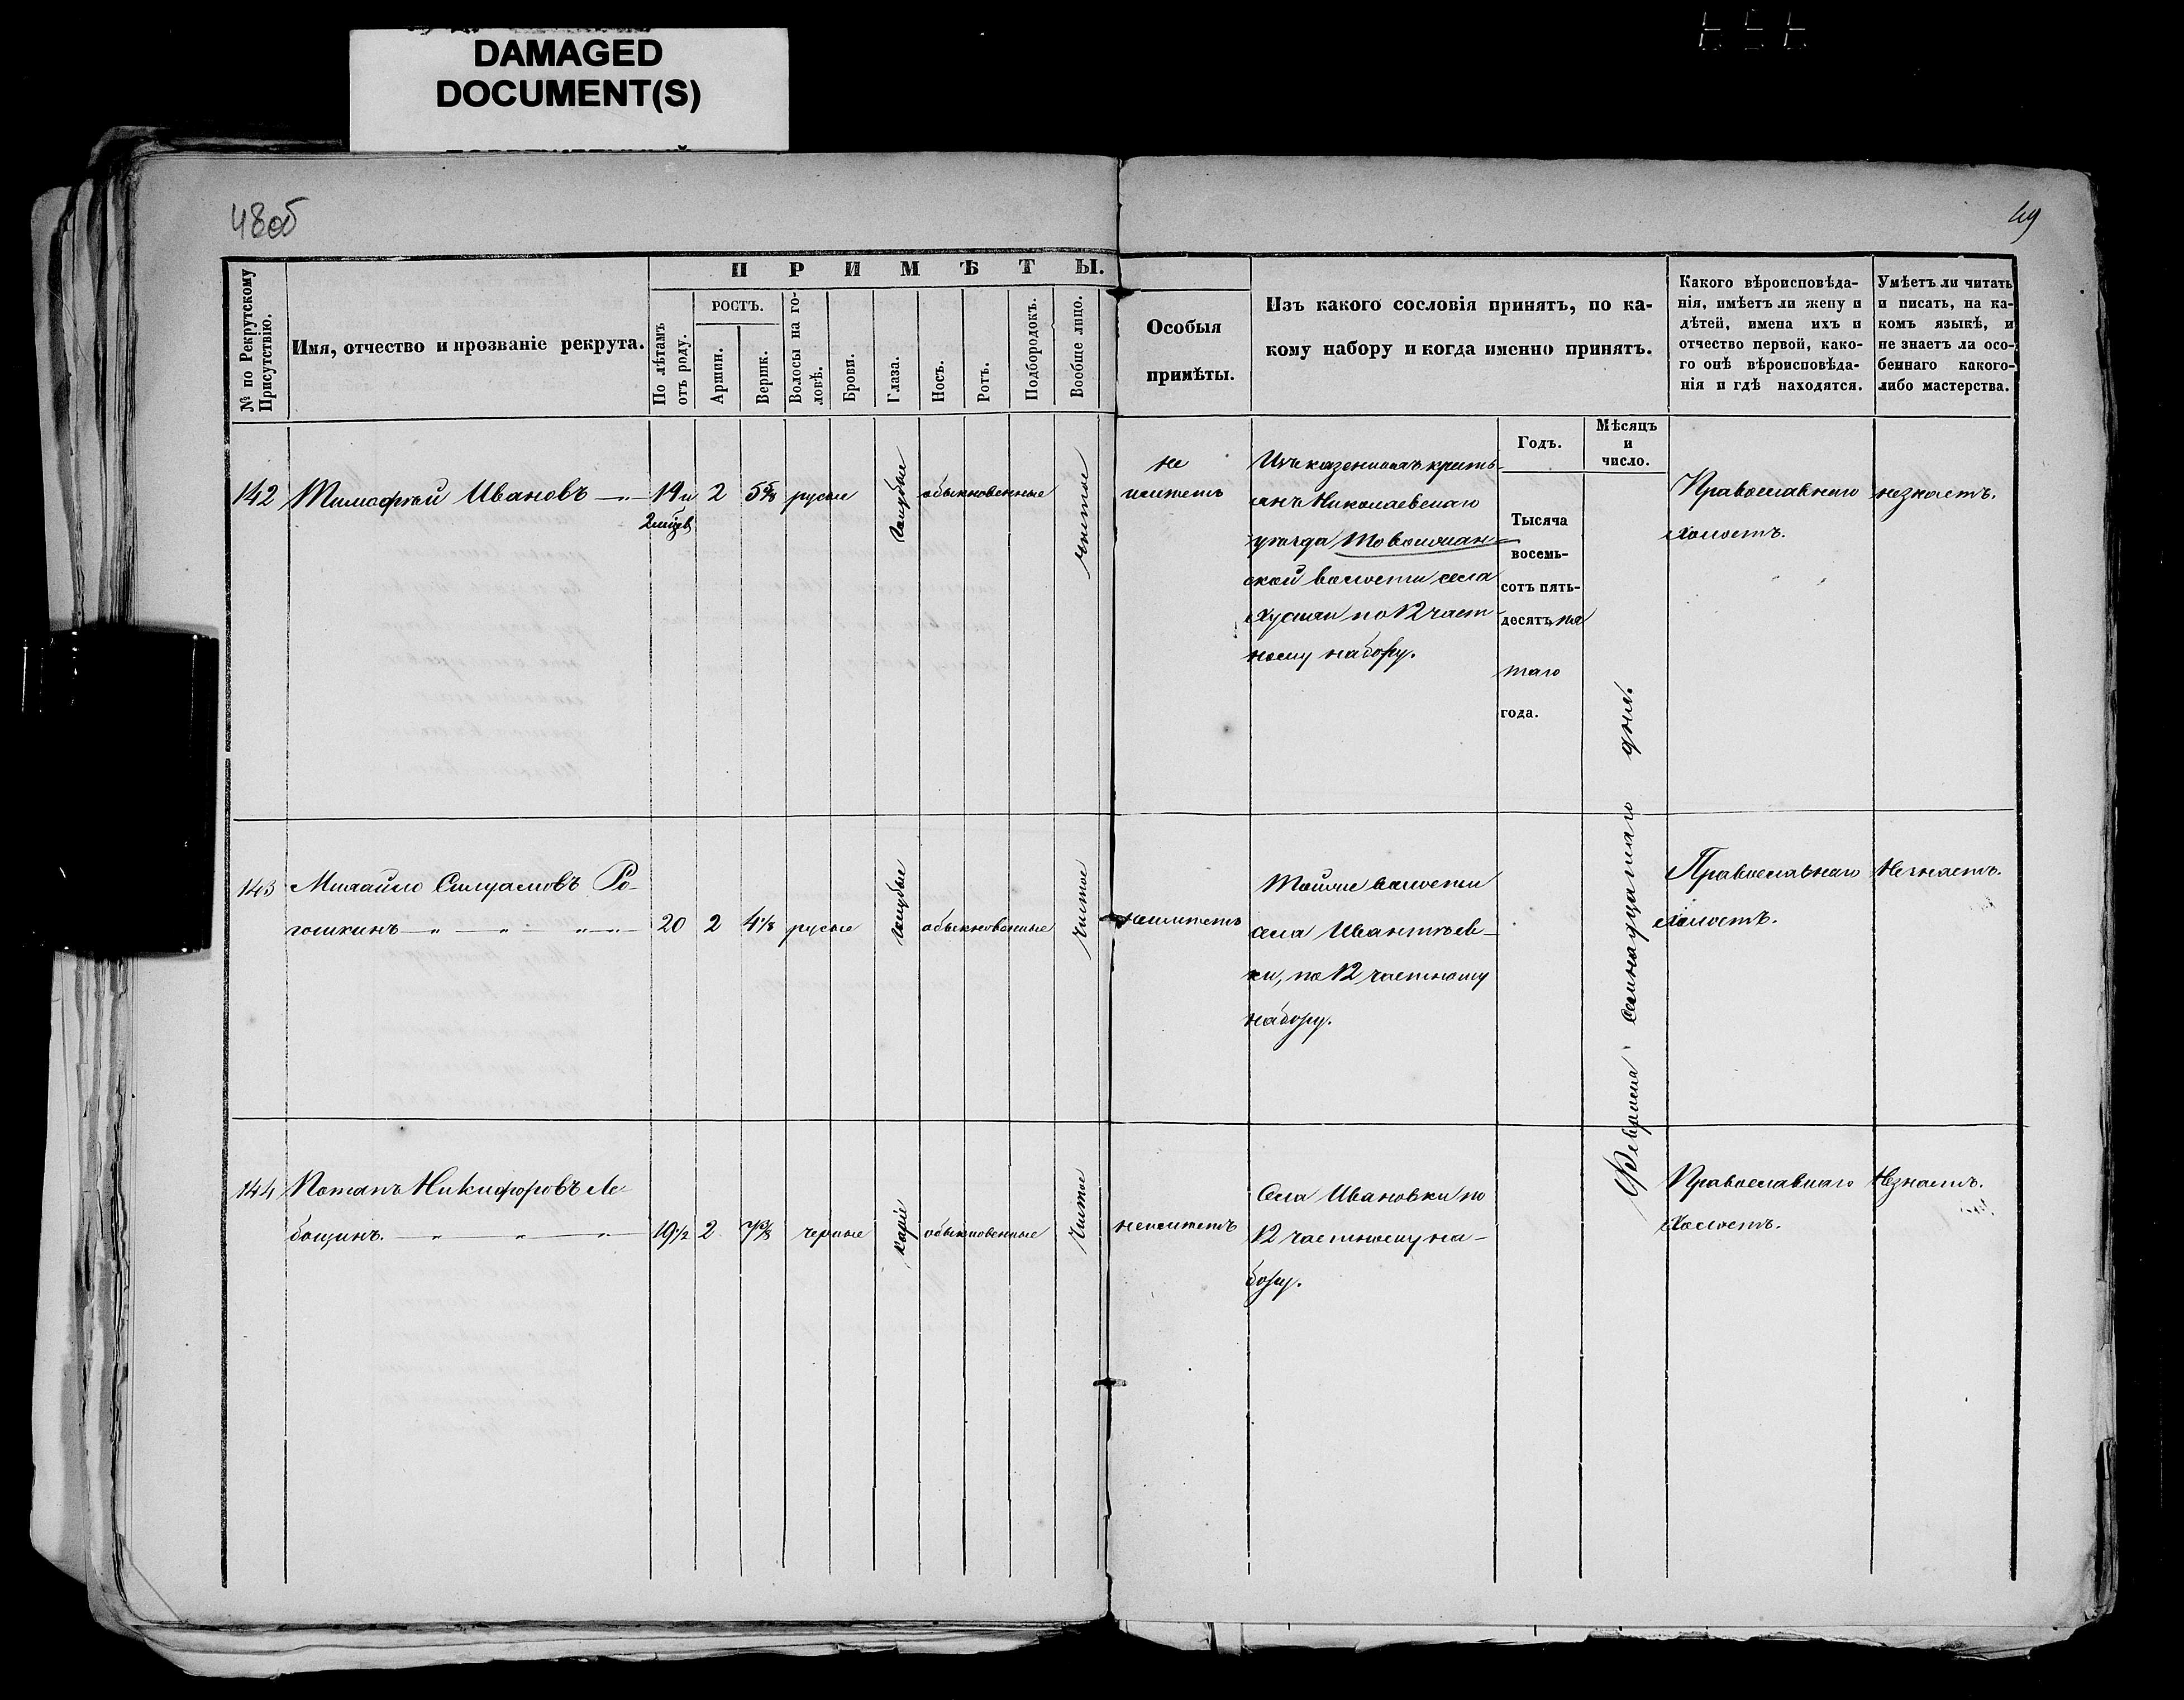 DAMAGED
DOCUMENT(S)
48об
49
№ по Рекрутскому Присутствію.
Имя, отчество и прозваніе рекрута.
ПРИМѢТЫ.
По лѣтамъ отъ роду.
РОСТЪ.
Аршин.
Вершк.
Волосы на головѣ.
Брови.
Глаза.
Носъ.
Ротъ.
Подбородокъ.
Вообще лицо.
Особыя
примѣты.
Изъ какого сословія принятъ, по ка-
кому набору и когда именно принятъ.
Какого вѣроисповѣда-
нія, имѣетъ ли жену и
дѣтей, имена ихъ и
отчество первой, како-
го онѣ вѣроисповѣда-
нія и гдѣ находятся.
Умѣетъ ли читать
и писать, на ка-
комъ языкѣ, и
не знаетъ ли осо-
беннаго какого-
либо мастерства.
Годъ.
Мѣсяцъ
и
число.
142 Тимофей Ивановъ 19 и 2 5⅝ русые голубые обыкновенные чистое
2 мѣсев
не
имѣетъ
Изъ казенныхъ кресть-
янъ Николаевскаго
уѣзда
ской волости села
по 12 част-
ному набору.
Тысяча
восемь-
сотъ пять-
десятъ пя
таго
года.
Февраля семнадцатаго дня.
Православнаго
холостъ.
незнаетъ.
143 Михайло Ро-
гошкинъ 20 2 4⅛ русые голубые обыкновенные чистое
неимѣетъ
Тойже волости
села Ивантѣев-
ки, по 12 частному
набору.
Православнаго
холостъ.
Незнаетъ.
144 Потапъ Никифоровъ Ле
бощинъ. 19½ 2 7⅜ черные каріе обыкновенные чистое
неимѣетъ
Села Ивановки по
12 частному на-
бору.
Православнаго
Холостъ.
Незнаетъ.